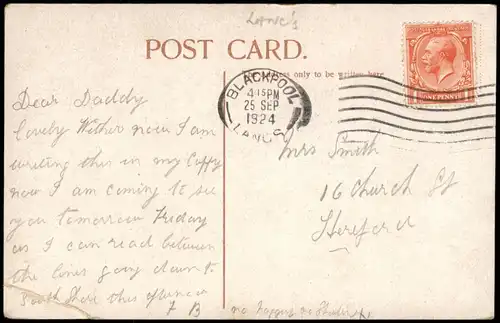 Lancs
POST CARD.
only to be written here
BLACKPOOL
4:15PM
25 SEP
1924
LANCS
ONE PENNY
Dear Daddy
lovely Wether now I am
writing this in my
now I am coming to see
you tomorrow Friday
as I can read between
the lines going down to
South Shore this
Mrs Smith
16 Church St
Hereford
no